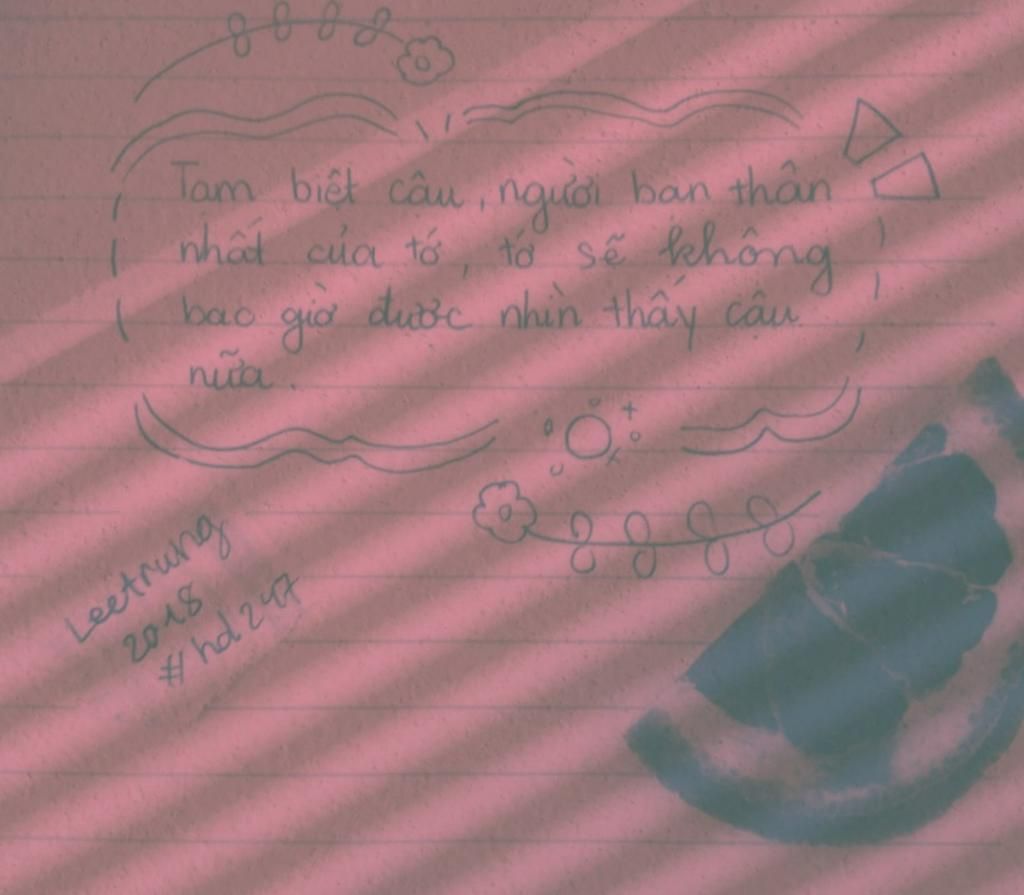 Tam biệt câu, người ban thân
nhất của tớ, tớ sẽ không
bao giờ được nhìn thấy câu
nữa.
Leetrung
2018
#hd247